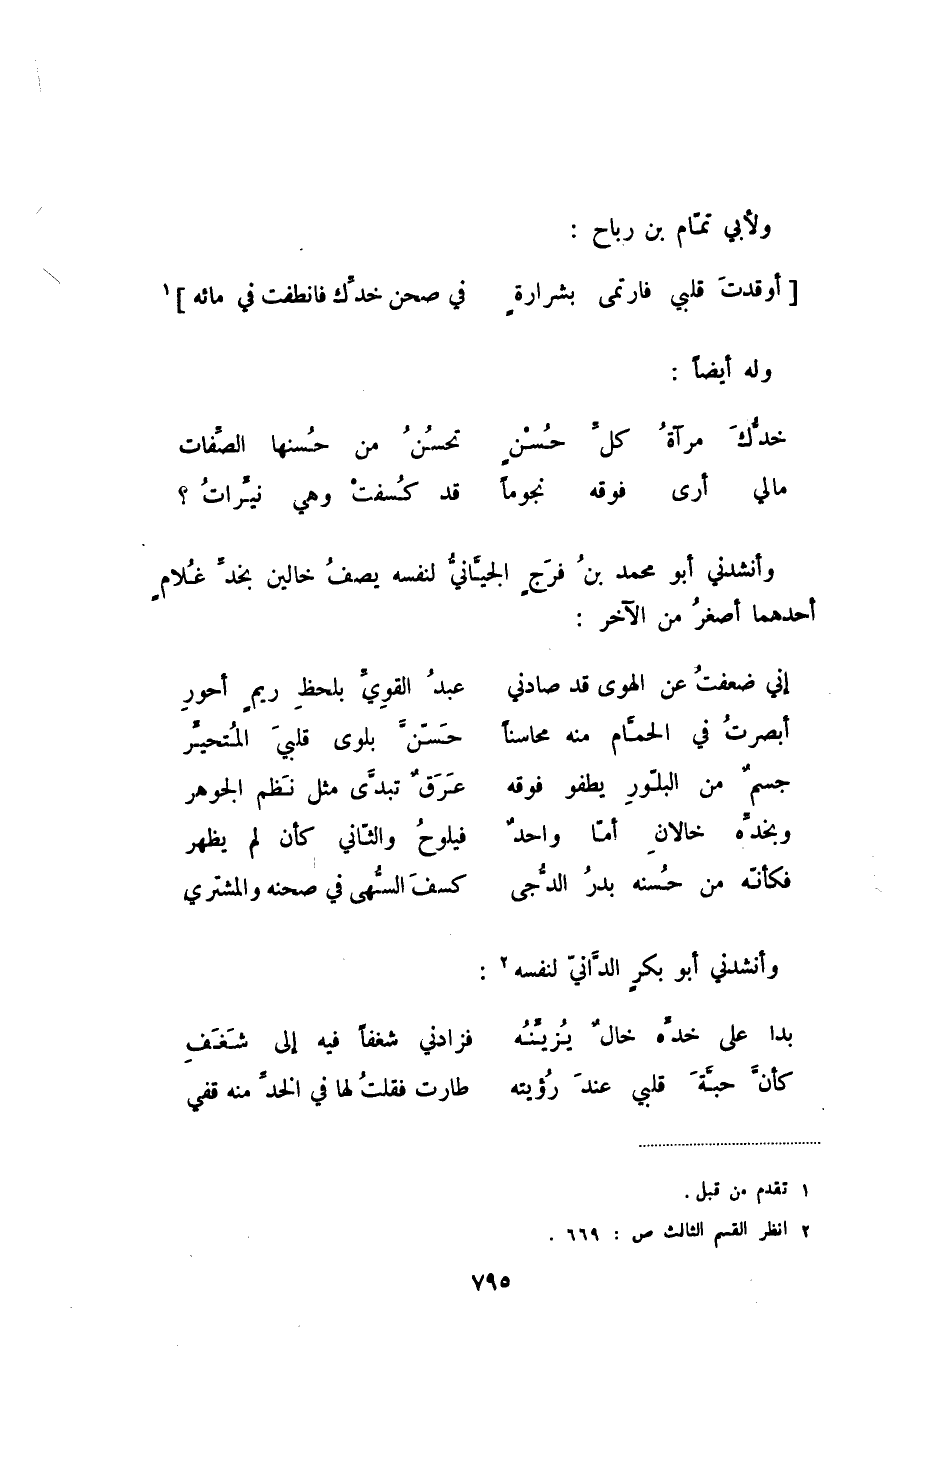 ولأبي تمّام بن رباح :
[ أوقدتَ قلبي فارتمى بشرارةٍ في صحن خدِّك فانطفت في مائه ] ١
وله أيضاً :
خدُّكَ مرآةُ كلِّ حُسْنٍ تحسُنُ من حُسنها الصِّفات
مالي أرى فوقه نجوماً قد كُسفتْ وهي نيِّراتُ ؟
وأنشدني أبو محمد بنُ فرَجٍ الجيَّانيُّ لنفسه يصفُ خالين بخدِّ غُلامٍ
أحدهما أصغرُ من الآخر :
إني ضعفتُ عن الهوى قد صادني عبدُ القويِّ بلحظِ ريمٍ أحورِ
أبصرتُ في الحمَّام منه محاسناً حَسّنَّ بلوى قلبيَ المُتحيِّر
جسمٌ من البلّورِ يطفو فوقه عَرَقٌ تبدَّى مثل نَظم الجوهر
وبخدِّه خالانِ أمّا واحدٌ فيلوحُ والثّاني كأن لم يظهر
فكأنّه من حُسنه بدرُ الدُّجى كسفَ السُّهى في صحنه والمشتري
وأنشدني أبو بكرٍ الدَّانيّ لنفسه ٢ :
بدا على خدِّه خالٌ يُزيِّنُه فزادني شغفاً فيه إلى شَغَفِ
كأنَّ حبَّةَ قلبي عندَ رُؤيته طارت فقلتُ لها في الخدِّ منه قفي
١ تقدم من قبل .
٢ انظر القسم الثالث ص : ٦٦٩ .
٧٩٥